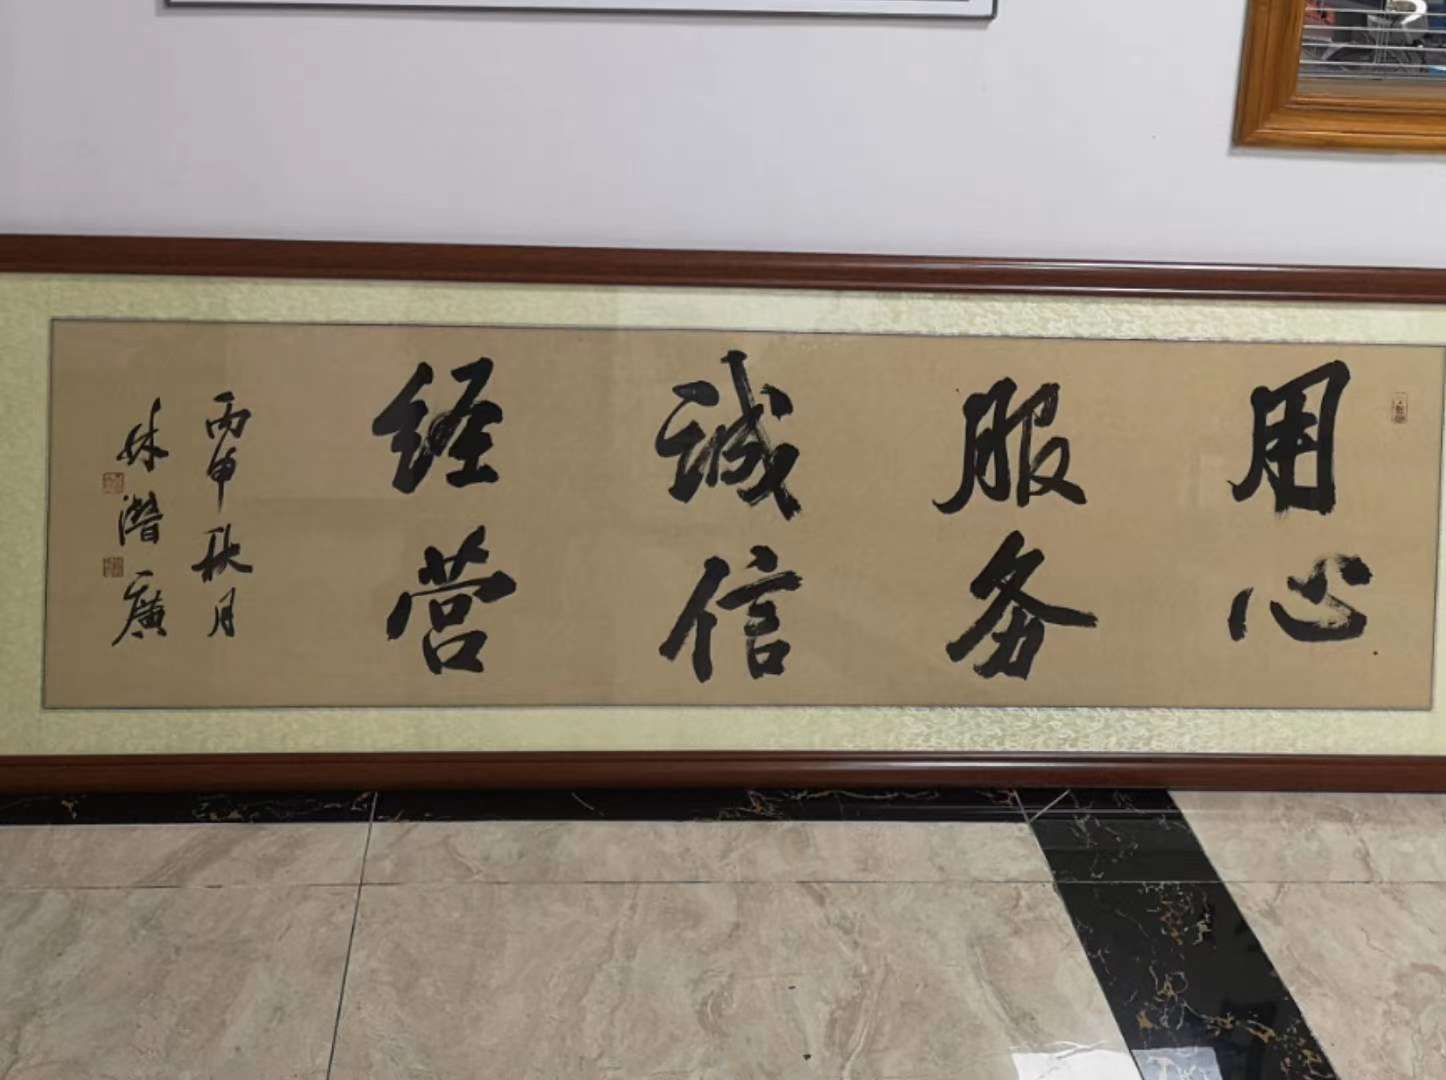 用心
服务
诚信
经营
丙申秋月
林潜广